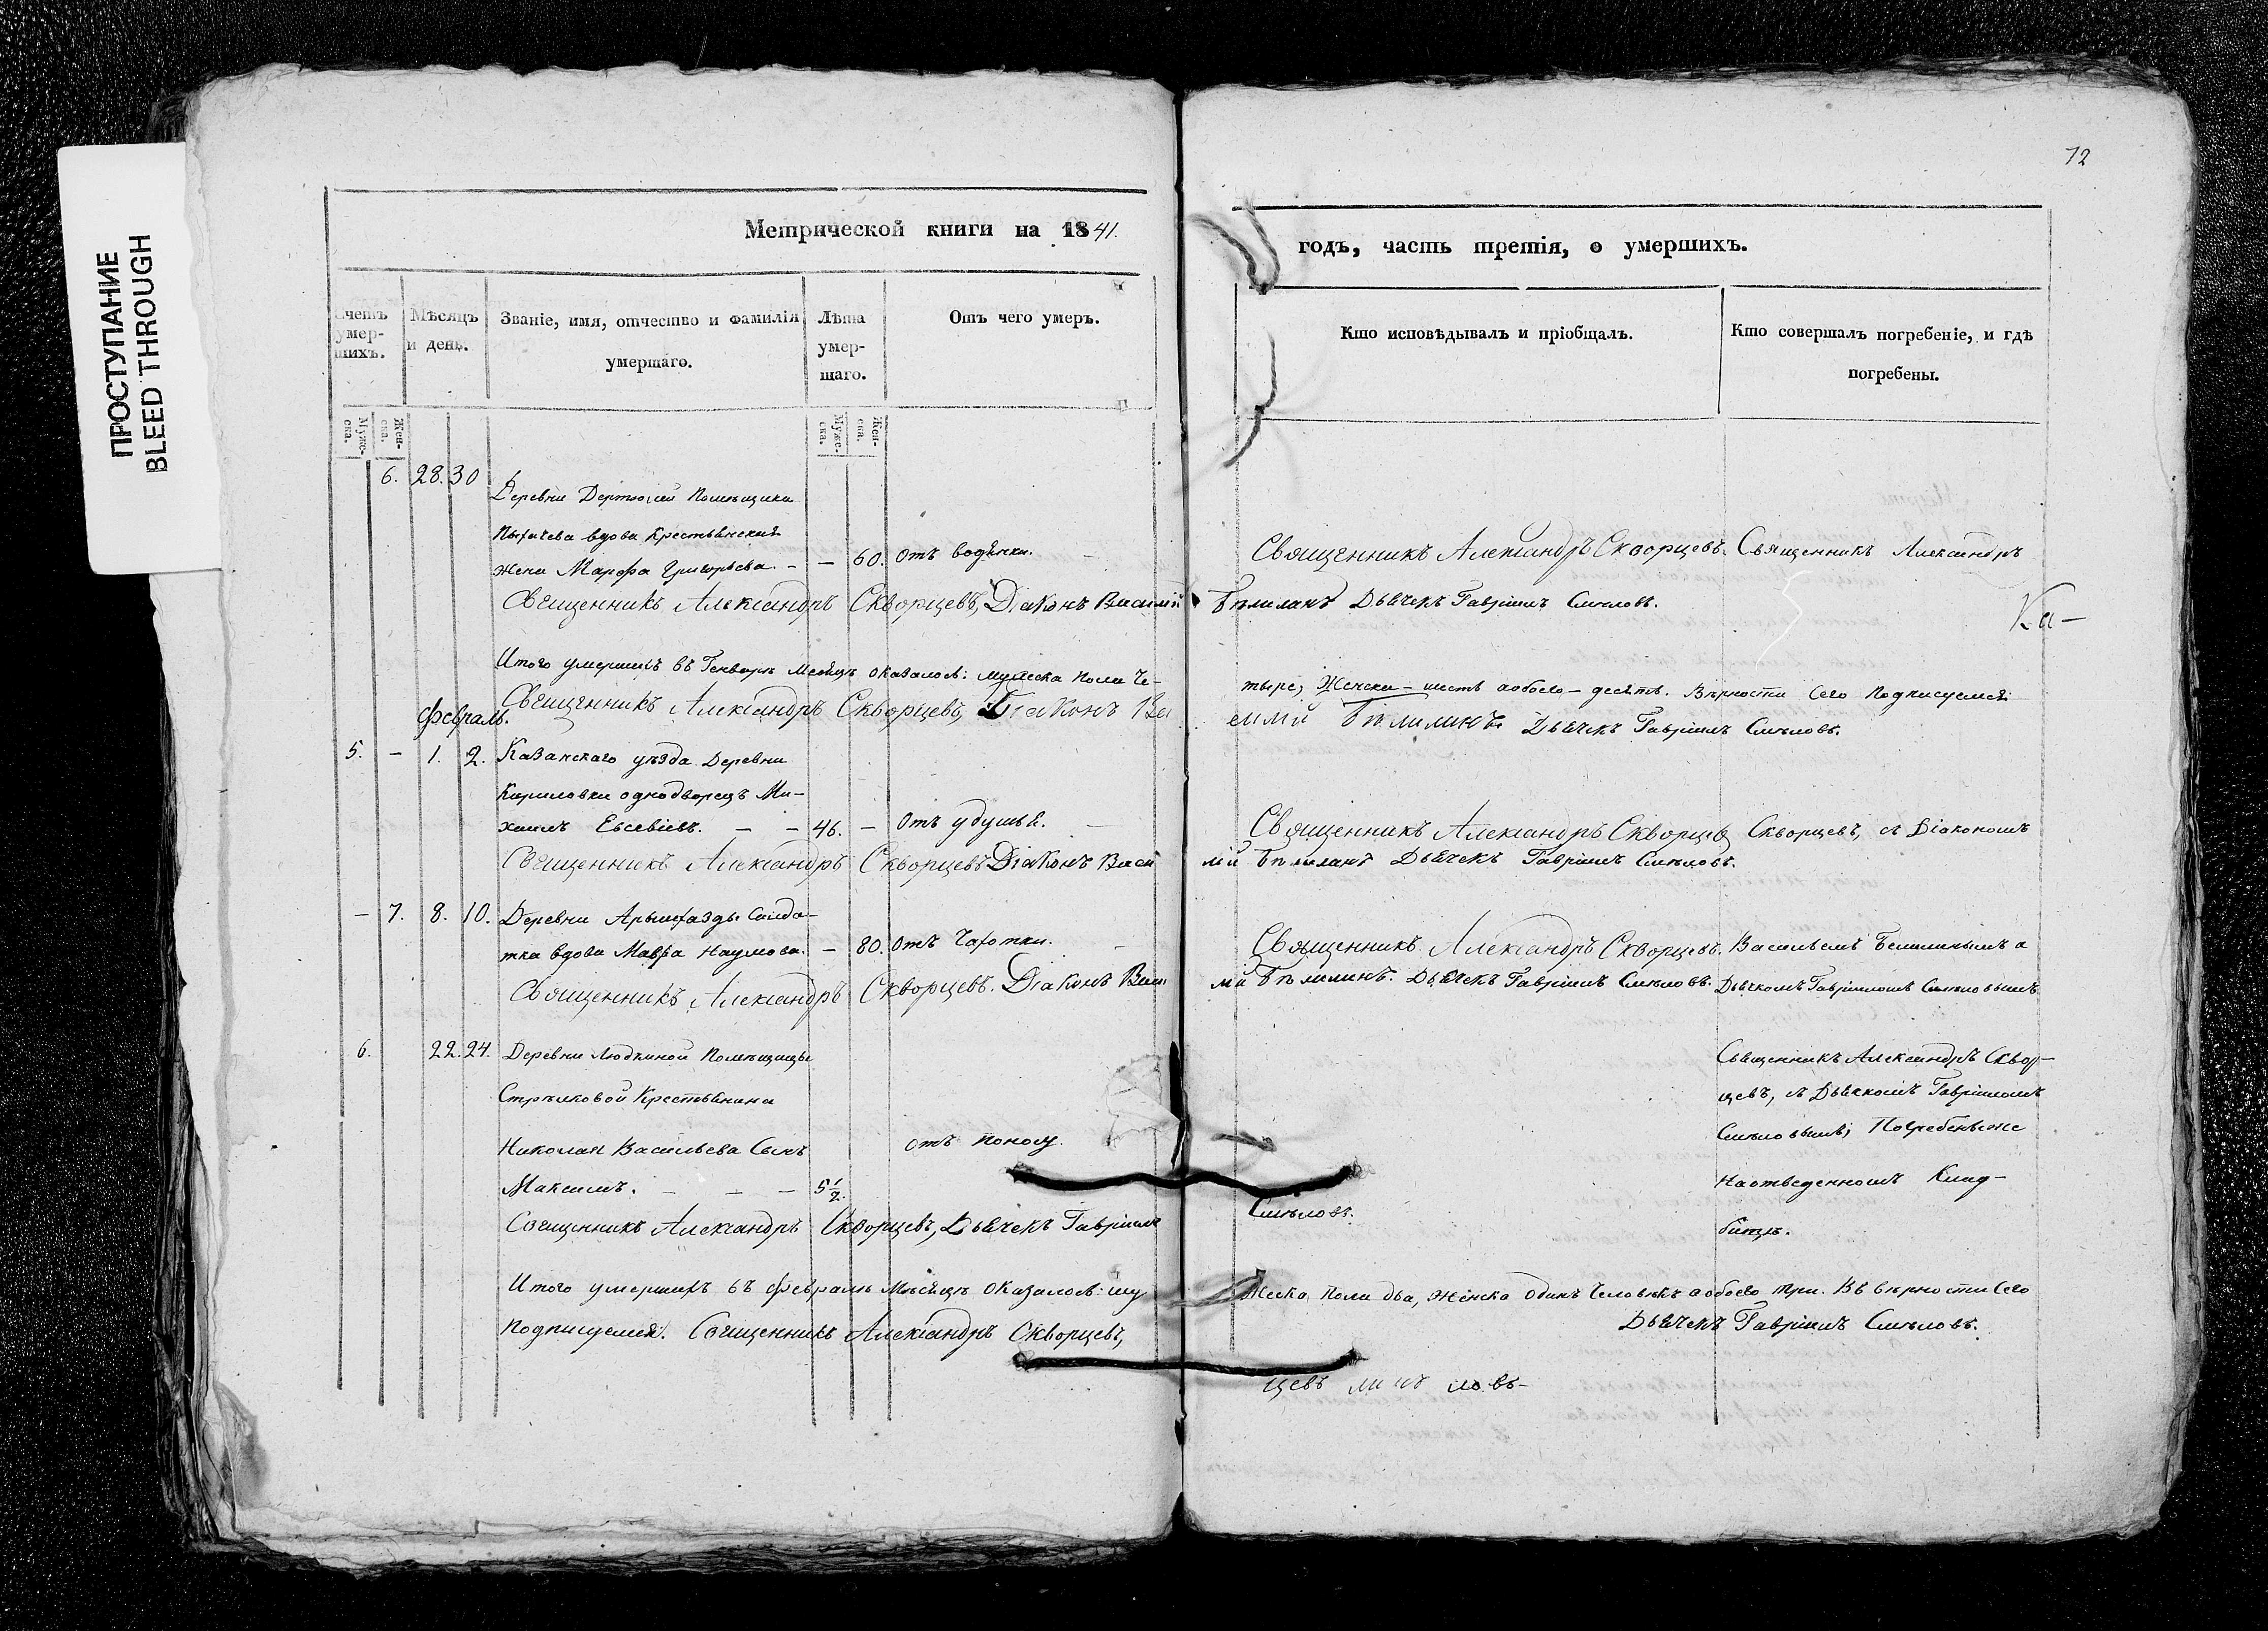 ПРОСТУПАНИЕ
BLEED THROUGH
72
Метрической книги на 1841.
годъ, часть третія, о умершихъ.
Счетъ умер-шихъ.
Мѣсяцъ и день.
Званіе, имя, отчество и фамилія умершаго.
Лѣта умер-шаго.
Отъ чего умеръ.
Кто исповѣдывалъ и пріобщалъ.
Кто совершалъ погребеніе, и гдѣ погребены.
Муже-ска.
Жен-ска.
Муже-ска.
Жен-ска.
6. 28. 30
Деревни Помѣщика
вдова Крестьянская
жена Марфа Григорьева. – – 60. Отъ водянки. –
Священникъ Александръ Скворцевъ. Священникъ Александръ
Священникъ Александръ Скворцевъ, Діаконъ Василій Бѣлилинъ Дьячекъ Гавріилъ Смѣловъ.
Ка-
Итого умершихъ въ Генварѣ Мѣсяцѣ оказалось: мужеска пола че-
тыре, Женска – шесть а обоего – десять. Вѣрности сего подписуемся:
Священникъ Александръ Скворцевъ, Діаконъ Ва
силій Бѣлилинъ. Дьячекъ Гавріилъ Смѣловъ.
Февраль.
5. – 1. 2. Казанскаго уѣзда Деревни
Кириловки однодворецъ Ми-
хаилъ Евсевіевъ. – – 46. – Отъ удушья. –
Священникъ Александръ Скворцевъ Скворцевъ, съ Діакономъ
Священникъ Александръ Скворцевъ Діаконъ Васи
лій Бѣлилинъ Дьячекъ Гавріилъ Смѣловъ.
– 7. 8. 10. Деревни Солда-
тка вдова Мавра Наумова. – 80. Отъ Чахотки. –
Священникъ Александръ Скворцевъ. Васильемъ Белилинымъ а
Священникъ Александръ Скворцевъ. Діаконъ Васи
лій Бѣлилинъ. Дьячекъ Гавріилъ Смѣловъ. Дьячкомъ Гавріиломъ Смѣловымъ.
6. 22. 24. Деревни Людкиной Помѣщицы
Стрѣлковой Крестьянина
Николая Васильева Сынъ
Максимъ. – – – 5 1/2.
отъ поносу.
Священникъ Александръ Сквор-
цевъ, съ Дьячкомъ Гавріиломъ
Смѣловымъ, Погребены же
На отведенномъ Клад-
бищѣ.
Священникъ Александръ Скворцевъ, Дьячекъ Гавріилъ
Смѣловъ.
Итого умершихъ въ Февралѣ Мѣсяцѣ оказалось: му
жеска пола два, женска одинъ человѣкъ а обоего три. Въ вѣрности сего
подписуемся: Священникъ Александръ Скворцевъ,
Дьячекъ Гавріилъ Смѣловъ.
цевъ линъ ловъ-